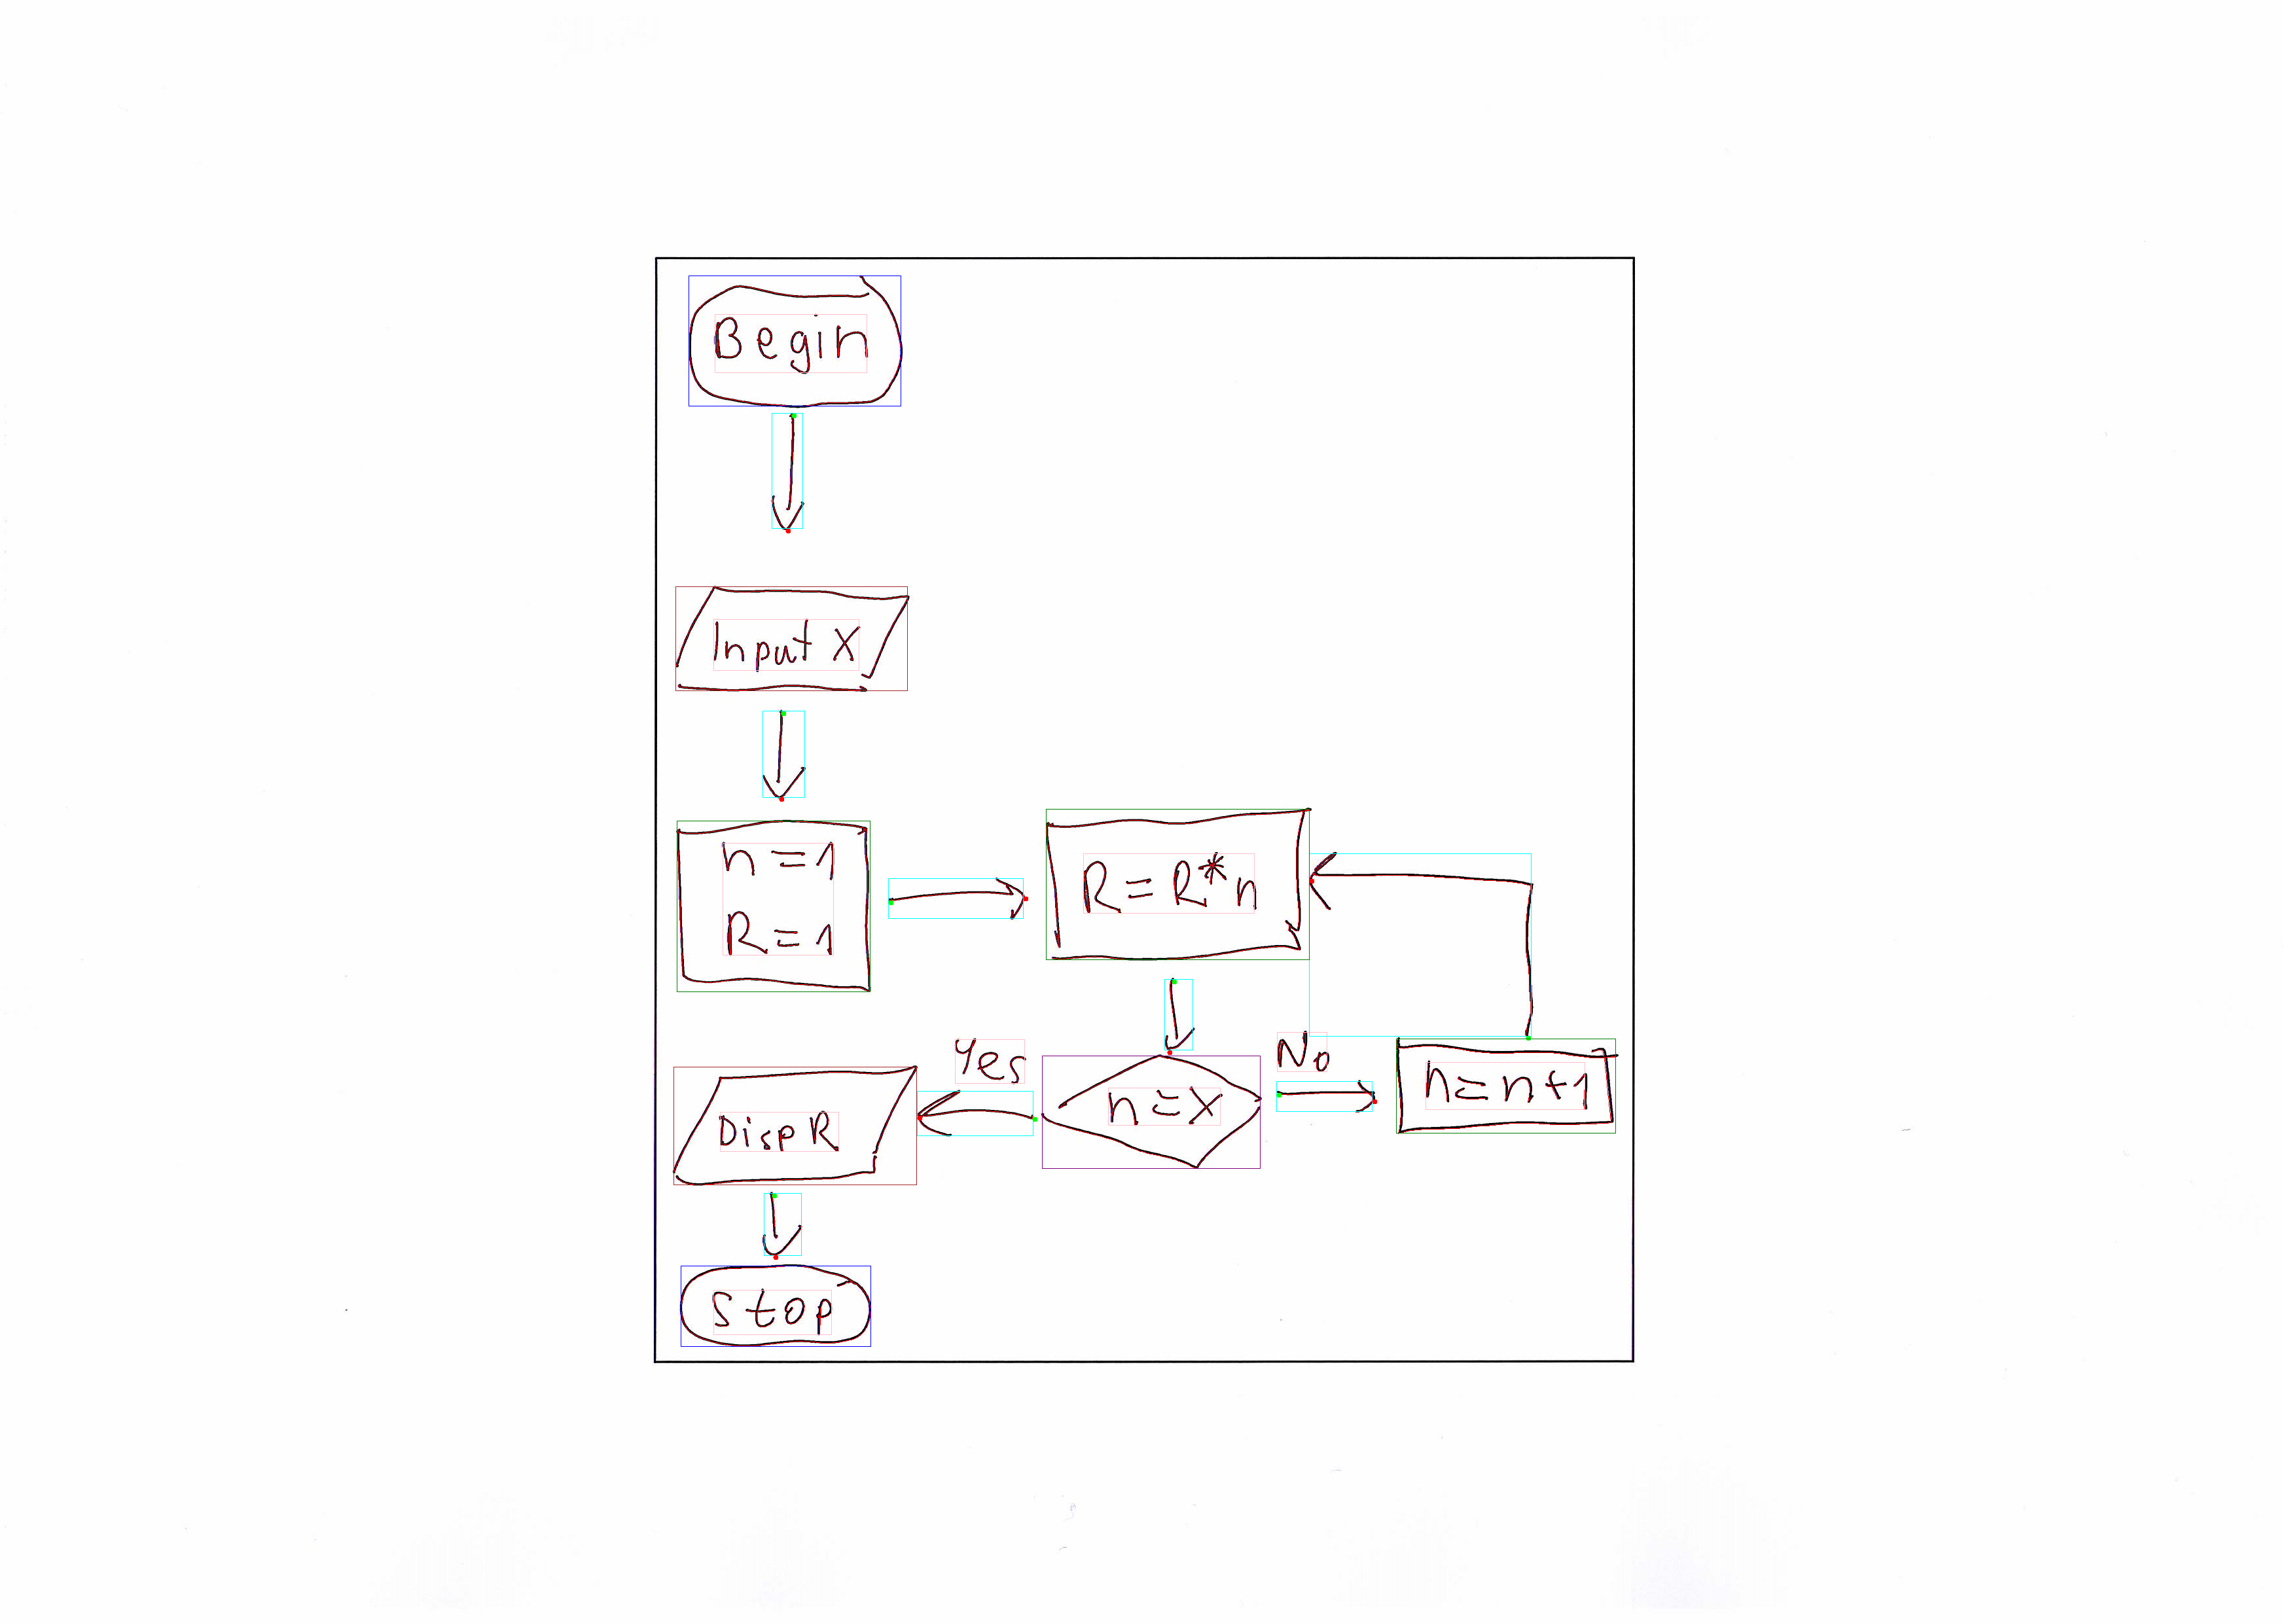 Begin
Input X
n=1
R=1
R=R*n
Yes
No
n=X
n=n+1
Disp R
Stop